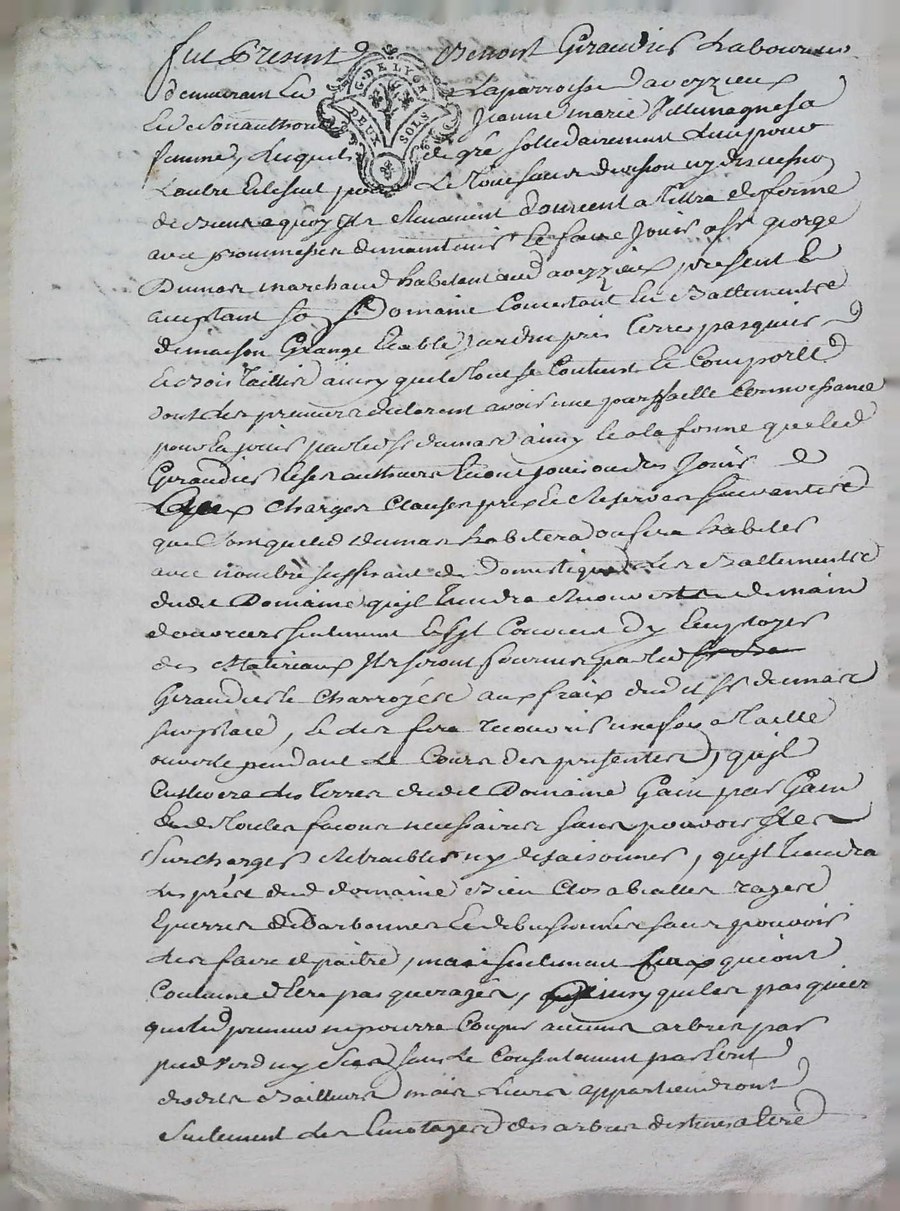 fut Present Benoist Giraudier Laboureur
demeurant En La parroisse d'avezzieux
Et de Son authorité Jeanne marie Villemagne sa
femme, Lesquels de gré sollidairement L'un pour
L'autre Et le seul pour Le Tout sans division ny discussion
de Biens a quoy Ils Renoncent donnent a Tittre de ferme
avec promesses de maintenir Et faire Jouir a Sr george
Dumas marchand habitant aud avezzieux present Et
acceptant Domaine Consistant En Battiments
de maison Grange Ecable Jardin prés Terres pasquier
Et Bois Taillis ainsy que le Tout se Contient Et Comporte
dont les preneurs declarent avoir une parffaitte Connoissance
pour En jouir par led sr dumas ainsy Et a la forme que led
Giraudier Et ses autheurs En ont joui ou du Jouir
Aux Charges Clauses prix Et Reserves Suivantes
que led dumas habitera ou fera habiter
avec nombre suffisant de Domestiques Les Battiments
dudit Domaine qu'jl Tiendra Recouverts de main
d'ouvriers seulement Et s'jl Convient D'y Employer
des Materiaux Ils seront fournis par led
Giraudier Et Charroyés aux fraix dudit Sr dumas
sur place, Et de faire recouvrir une fois a Taille
ouverte pendant Le Cours des presentes, qu'jl
Cultivera Les Terres dudit Domaine Gain par Gain
de Toutes façons necessaires sans pouvoir Les
Surcharger Retroubler ny desaisonner, qu'jl Tiendra
Les prés dud domaine Bien Clos abiallés razés
Epierrés Et debuissonnés sans pouvoir
Les faire paitre, mais seulement Ceux qui ont
Coutume d'Etre pasquerages, ainsy que Les pasquier
que led preneur ne pourra Couper aucuns arbres par
pied Verd ny Sec sans Le Consentement par Ecrit
desdits Bailleurs mais Luy appartiendront
Seulement Les Emotages des arbres destinés a Etre
G. DE LYON
DEUX SOLS